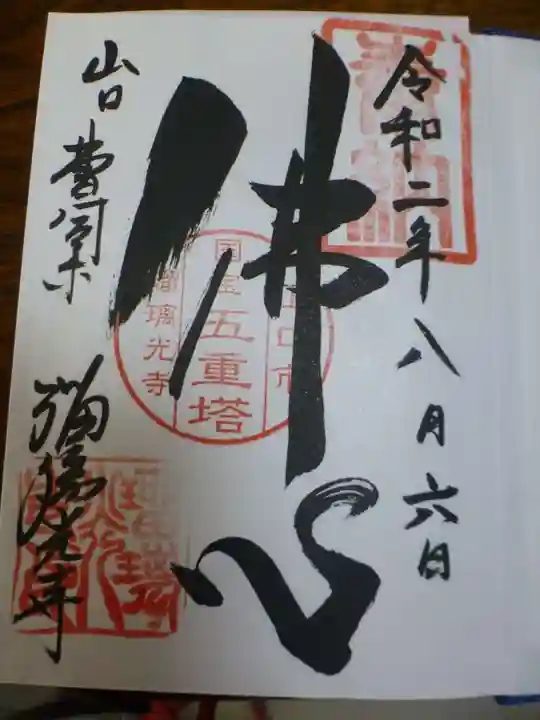 令和二年八月六日
佛心
山口
市
国宝
五重塔
瑠璃光寺
山口
曹洞宗
瑠璃光寺